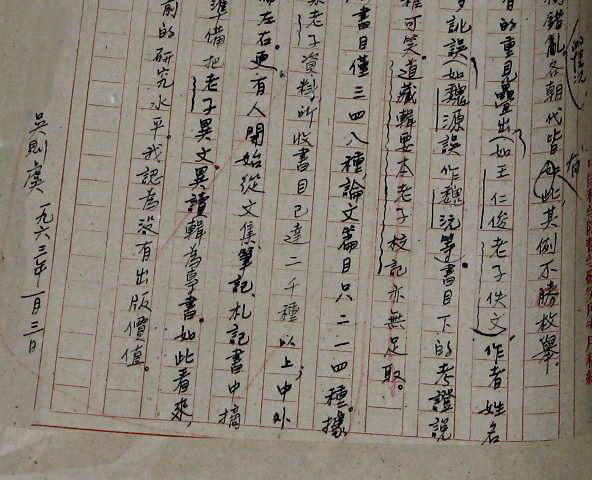 錯亂各朝代皆有此,其例不勝枚舉。
的重見疊出(如王仁俊老子佚文)作者姓名
訛誤(如魏源誤作魏沅)等。書目下的考證說
可笑。道藏輯要本老子校記亦無足取。
書目僅三四八種,論文篇目只二一四種。據
老子資料所收書目已達二千種以上;中外
左右。更有人開始從文集、筆記、札記書中摘
準備把老子異文異讀輯為專書。如此看來,
前的研究水平。我認為沒有出版價值。
吳則虞 一九六三年一月三日